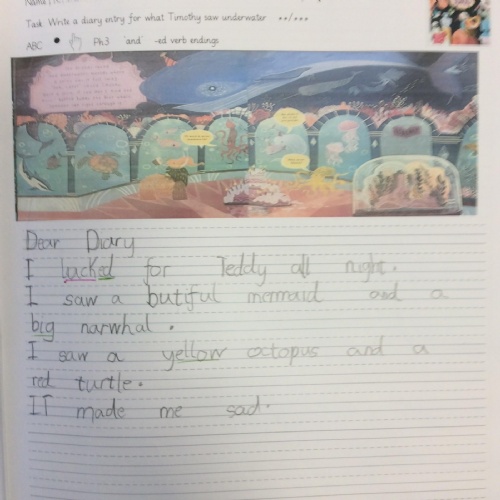 Task: Write a diary entry for what Timothy saw underwater
ABC Ph3 'and' -ed verb endings
Dear Diary
I lucked for Teddy all night.
I saw a butiful mermaid and a
big narwhal.
I saw a yellow octopus and a
red turtle.
IT made me sad.